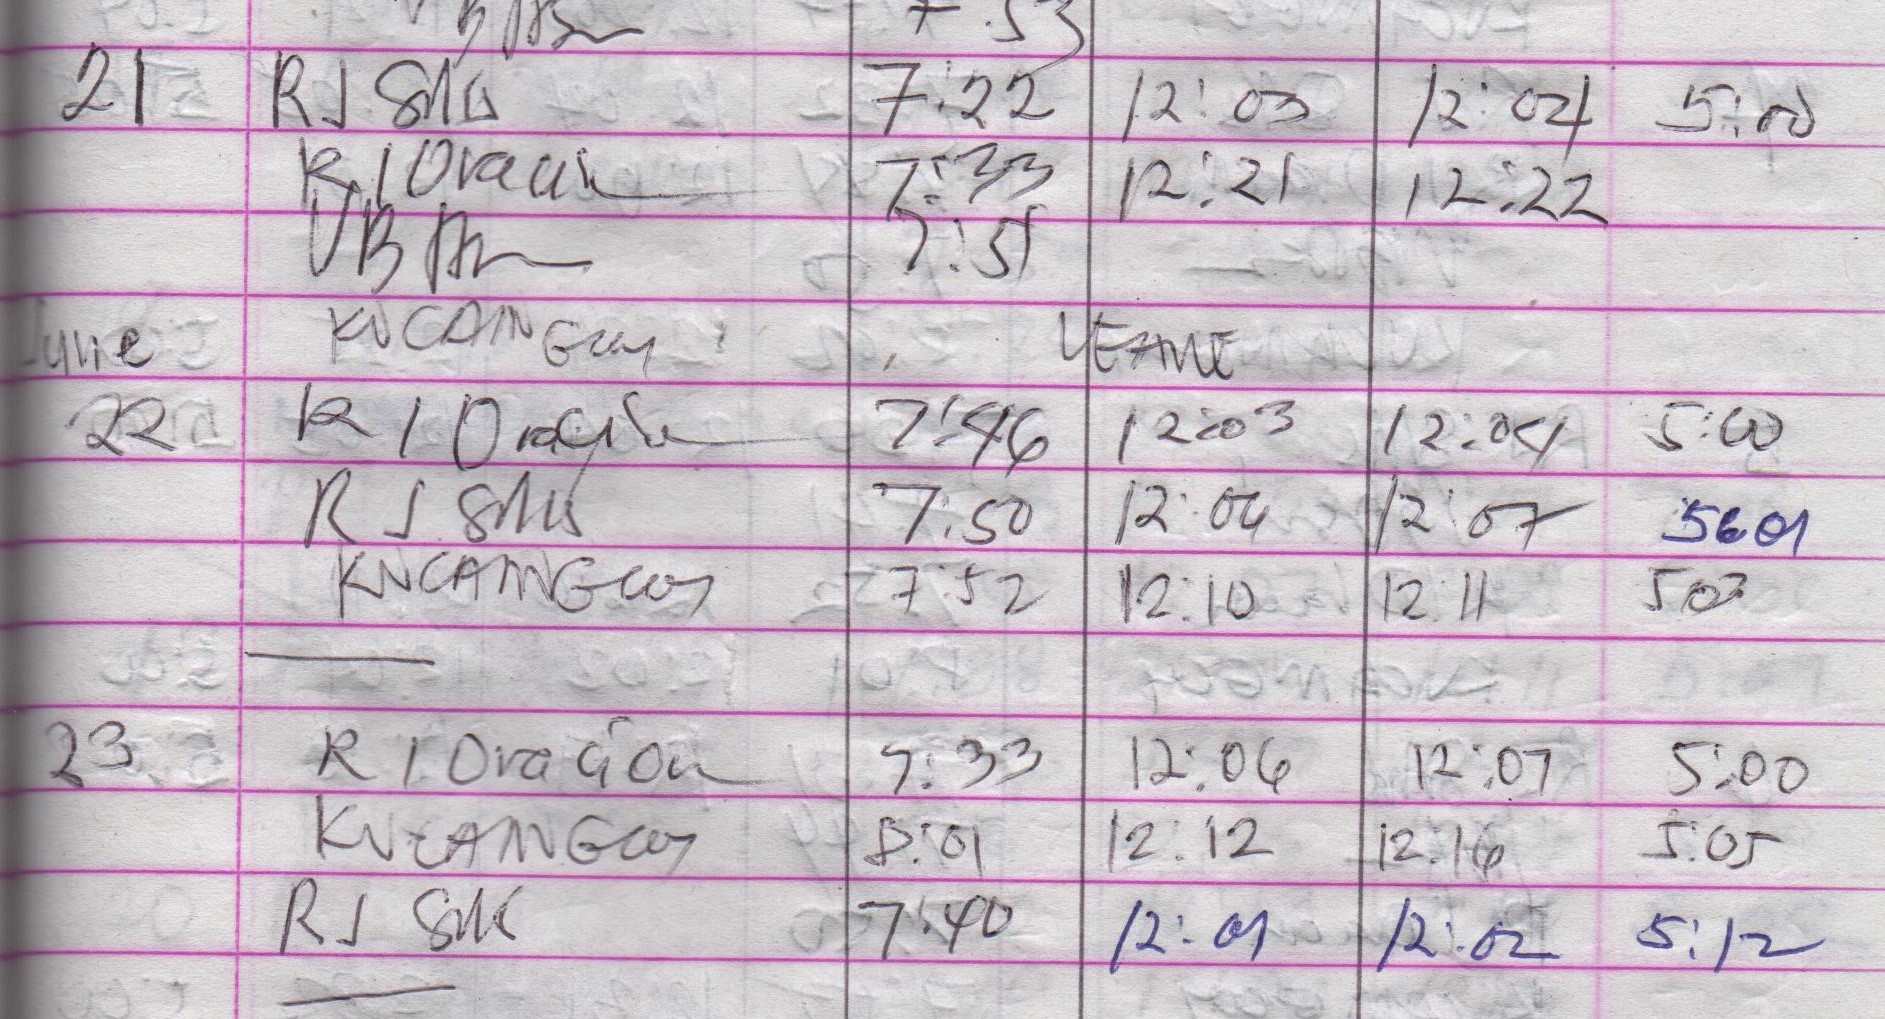 7:53
21 RJ 7:22 12:03 12:04 5:00
R I Oracion 7:33 12:21 12:22
VB 7:51
KNCAINGCOY LEAVE
June
22 R I Oracion 7:46 12:03 12:04 5:00
RJ 7:50 12:06 12:07 5:01
KNCAINGCOY 7:52 12:10 12 11 5 03
23 R I Oracion 7:33 12:06 12:07 5:00
KNCAINGCOY 8:01 12:12 12.16 5:05
RJ 7:40 12:01 12:02 5:12